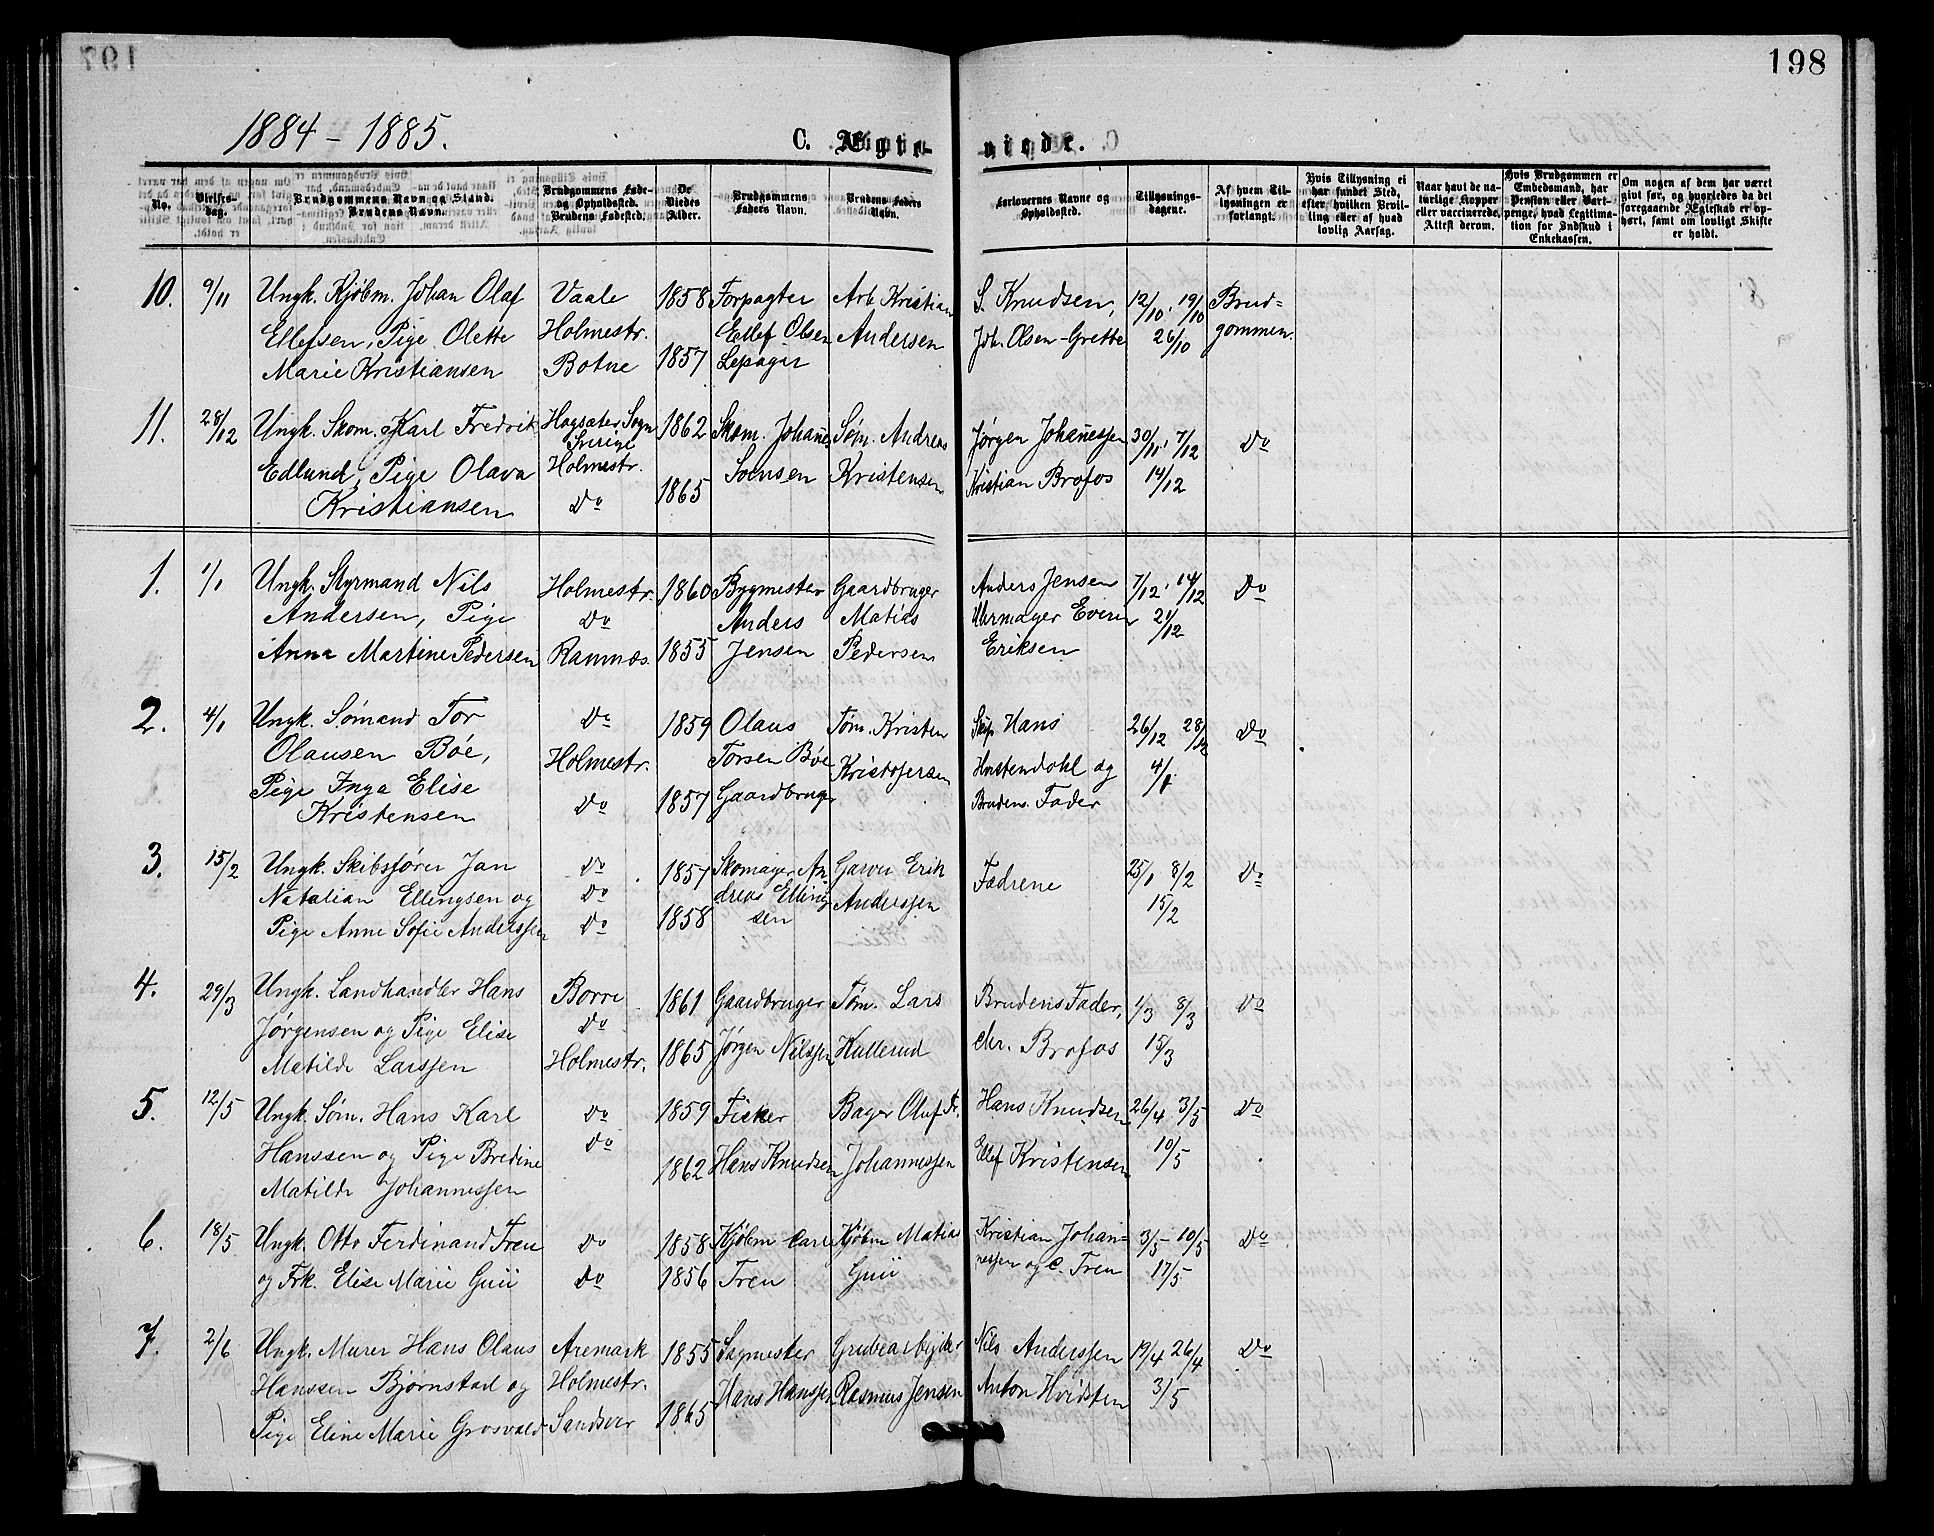 198
1884 - 1885.
C. Ægte-
viede.
No.
Vielses-
dag.
Brudgommens Navn og Stand.
Brudens Navn.
Brudgommens Føde-
og Opholdssted.
Brudens Fødested.
De
Viedes
Alder.
Brudgommens
Faders Navn.
Brudens Faders
Navn.
Forlovernes Navne og
Opholdssted.
Tillysnings-
dagene.
Af hvem Til-
lysningen er
forlangt.
Hvis Tillysning ei
har fundet Sted,
efter hvilken Bevil-
ling eller af hvad
lovlig Aarsag.
Naar havt de na-
turlige Kopper
eller vaccinerede,
Attest derom.
Hvis Brudgommen er
Embedsmand, har
Pension eller Vart-
penge, hvad Legitima-
tion for Indskud i
Enkekassen.
Om nogen af dem har været
gift før, og hvorledes da det
foregaaende Ægteskab er op-
hørt, samt om lovligt Skifte
er holdt.
10. 9/11 Ungk. Kjøbm. Johan Olaf Vaale 1858 Forpagter Arb. Kristian S. Knudsen, 12/10, 19/10 Brud=
Ellefsen, Pige Olette Holmestr. Ellef Olsen Andersen Joh. Olsen-Grette 26/10 gommen.
Marie Kristiansen Botne 1857 Lepager
11. 28/12 Ungk. Skom. Karl Fredrik Hogsäter Sogn 1862 Skom. Johanes Søm. Andreas Jørgen Johanessen 30/11, 7/12 Do
Sverige
Edlund, Pige Olava Holmestr. Soensen Kristensen Kristian Brofos 14/12
Kristiansen Do 1865
1. 1/1 Ungk. Styrmand Nils Holmestr. 1860 Bygmester Gaardbruger Anders Jensen 7/12, 14/12 Do
Andersen, Pige Do Anders Matias Uhrmager Even 21/12
Anna Martine Pedersen Ramnæs. 1855 Jensen Pedersen Eriksen
2. 4/1 Ungk. Sømand Tor Do 1859 Olaus Tøm. Kristen Skip. Hans 26/12 28/12 Do
Olausen Bøe, Holmestr. Torsen Bøe Kristofersen og 4/1
Pige Inga Elise Do 1857 Gaardbruger Brudens Fader
Kristensen
3. 15/2 Ungk. Skibsfører Jan Do 1857 Skomager An Garver Erik Fædrene 25/1 8/2 Do
Natalian Ellingsen og Do dreas Elling Anderssen 15/2
Pige Anne Sofie Anderssen Do 1858 sen
4. 29/3 Ungk. Landhandler Hans Borre 1861 Gaardbruger Tøm. Lars Brudens Fader, 1/3 8/3 Do
Jørgensen og Pige Elise Do Jørgen Nilssen Hullerud Chr. Brofos 15/3
Matilde Larssen Holmestr. 1865
5. 12/5 Ungk. Søm. Hans Karl Do 1859 Fisker Bager Oluf Fr. Hans Knudsen 26/4 3/5 Do
Hanssen og Pige Bredine Do 1862 Hans Knudsen Johannessen Ellef Kristensen 10/5
Matilde Johannessen
6. 18/5 Ungk. Otto Ferdinand Tren Do 1858 Kjøbm Carl Kjøbm Matias Kristian Johan= 3/5 10/5 Do
og Frk. Elise Marie Guii Do 1856 Tren Guii nessen og C. Tren 17/5
7. 2/6 Ungk. Murer Hans Olaus Aremark 1855 Sagmester Grubearbejder Nils Anderssen 19/4 26/4 Do
Hanssen Bjørnstad og Holmestr. Hans Hanssen Rasmus Jensen Anton Hvidsten 3/5
Pige Eline Marie Grosvold Sandsver 1865